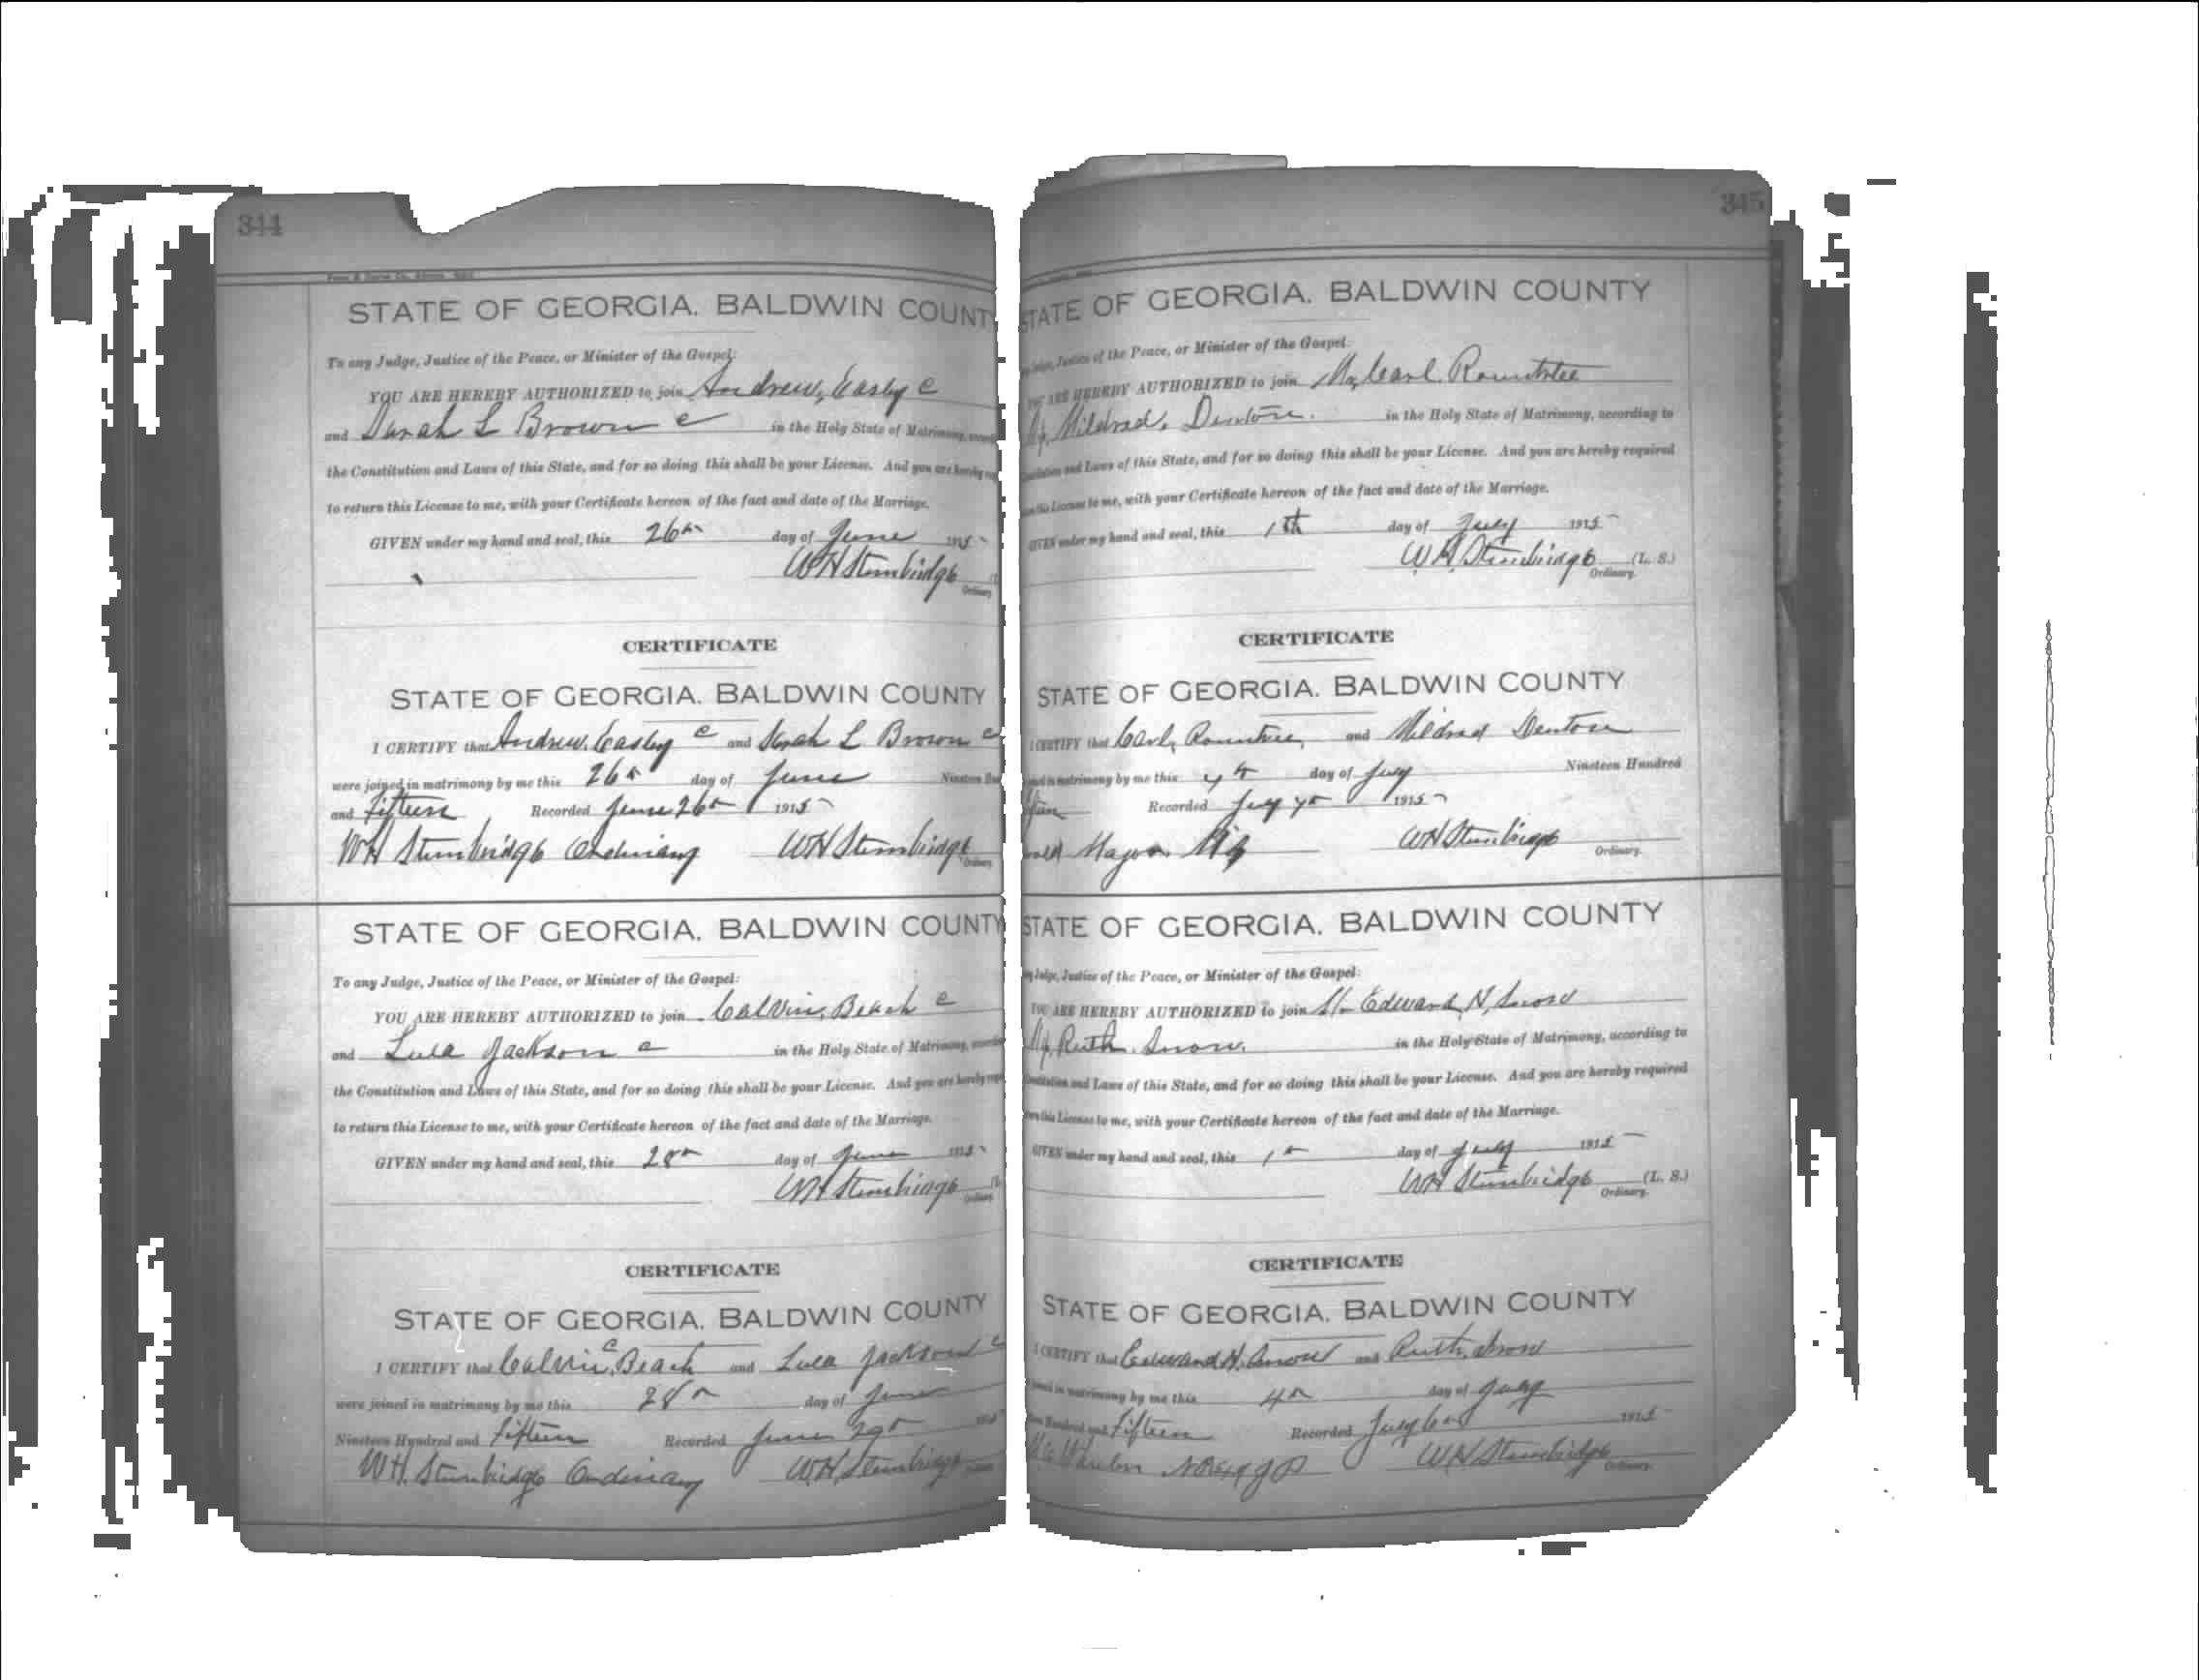 344
STATE OF GEORGIA. BALDWIN COUNT
To any Judge, Justice of the Peace, or Minister of the Gospel:
YOU ARE HEREBY AUTHORIZED to join Andrew, Easley c
and Sarah L Brown c in the Holy State of Matrimony,
the Constitution and Laws of this State, and for so doing this shall be your License. And you are hereby
to return this License to me, with your Certificate hereon of the fact and date of the Marriage.
GIVEN under my hand and seal, this 26th day of June 1915
WH Stembridge
Ordinary
CERTIFICATE
STATE OF GEORGIA. BALDWIN COUNTY
I CERTIFY that Andrew, Easley c and Sarah L Brown c
were joined in matrimony by me this 26th day of June Nineteen
and Fifteen Recorded June 26th 1915
WH Stembridge Ordinary WH Stembridge
Ordinary
STATE OF GEORGIA. BALDWIN COUNTY
To any Judge, Justice of the Peace, or Minister of the Gospel:
YOU ARE HEREBY AUTHORIZED to join Calvin, Beach c
and Lula Jackson c in the Holy State of Matrimony,
the Constitution and Laws of this State, and for so doing this shall be your License. And you are hereby
to return this License to me, with your Certificate hereon of the fact and date of the Marriage.
GIVEN under my hand and seal, this 28th day of June 1915
WH Stembridge
CERTIFICATE
STATE OF GEORGIA. BALDWIN COUNTY
I CERTIFY that Calvin, Beach c and Lula Jackson c
were joined in matrimony by me this 28th day of June
Nineteen Hundred and Fifteen Recorded June 29th 1915
WH. Stembridge Ordinary WH. Stembridge
345
STATE OF GEORGIA. BALDWIN COUNTY
Justice of the Peace, or Minister of the Gospel:
YOU ARE HEREBY AUTHORIZED to join Mr, Carl. Rountree
Mildred, Denton. in the Holy State of Matrimony, according to
and Laws of this State, and for so doing this shall be your License. And you are hereby required
this License to me, with your Certificate hereon of the fact and date of the Marriage.
GIVEN under my hand and seal, this 1th day of July 1915
W.H. Stembridge (L. S.)
Ordinary.
CERTIFICATE
STATE OF GEORGIA. BALDWIN COUNTY
I CERTIFY that Carl, Rountree, and Mildred Denton
in matrimony by me this day of July Nineteen Hundred
Recorded July 1915
WH Stembridge
Ordinary.
STATE OF GEORGIA. BALDWIN COUNTY
Judge, Justice of the Peace, or Minister of the Gospel:
YOU ARE HEREBY AUTHORIZED to join Mr Edward N, Snow
Ruth. Snow. in the Holy State of Matrimony, according to
and Laws of this State, and for so doing this shall be your License. And you are hereby required
this License to me, with your Certificate hereon of the fact and date of the Marriage.
GIVEN under my hand and seal, this 1th day of July 1915
WH Stembridge (L. S.)
Ordinary.
CERTIFICATE
STATE OF GEORGIA. BALDWIN COUNTY
I CERTIFY that Edward N. Snow and Ruth, Snow
in matrimony by me this 4th day of July
Hundred and Fifteen Recorded July 6th 1915
WH Stembridge
Ordinary.